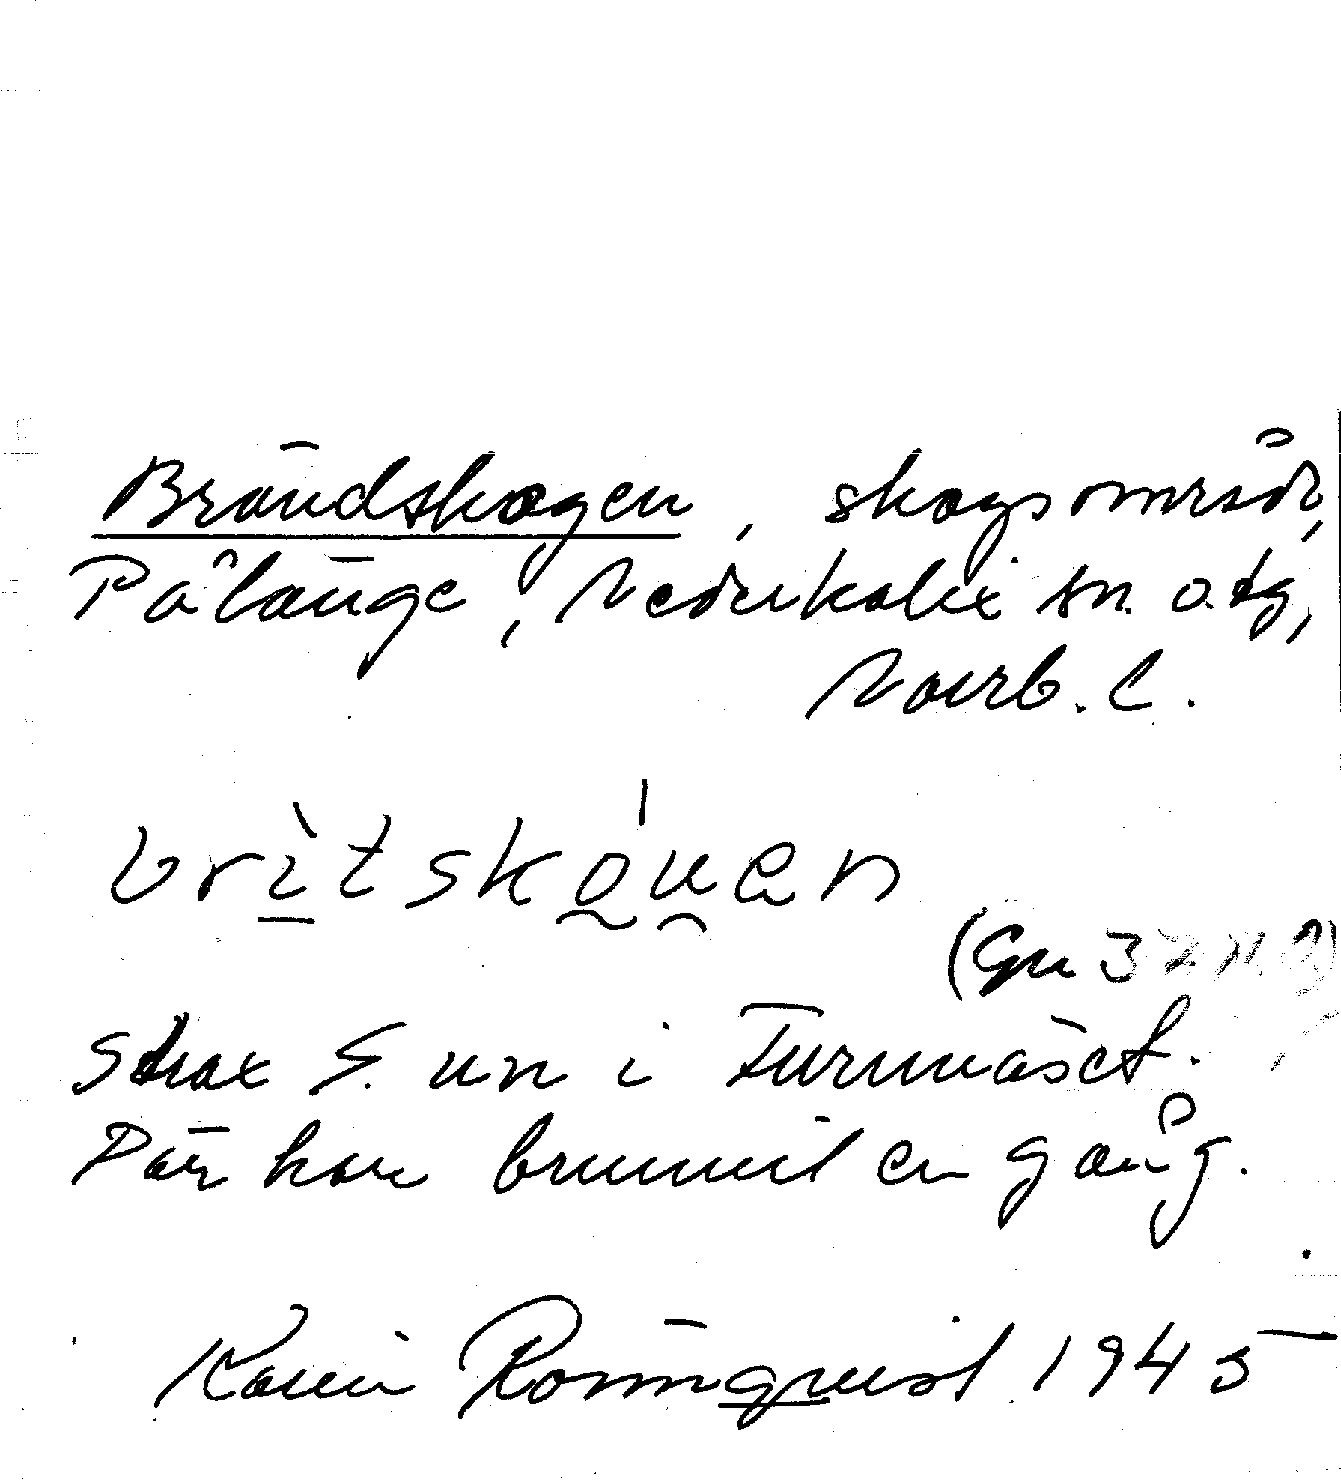 Brändskogen, skogsområde,
Pålänge, Nederkalix sn. o. tg,
Norrb. l.
britskåuen
(Gu
Strax S. um i Furunäset.
Där har brunnit en gång.
Karin Rönnquist 1945